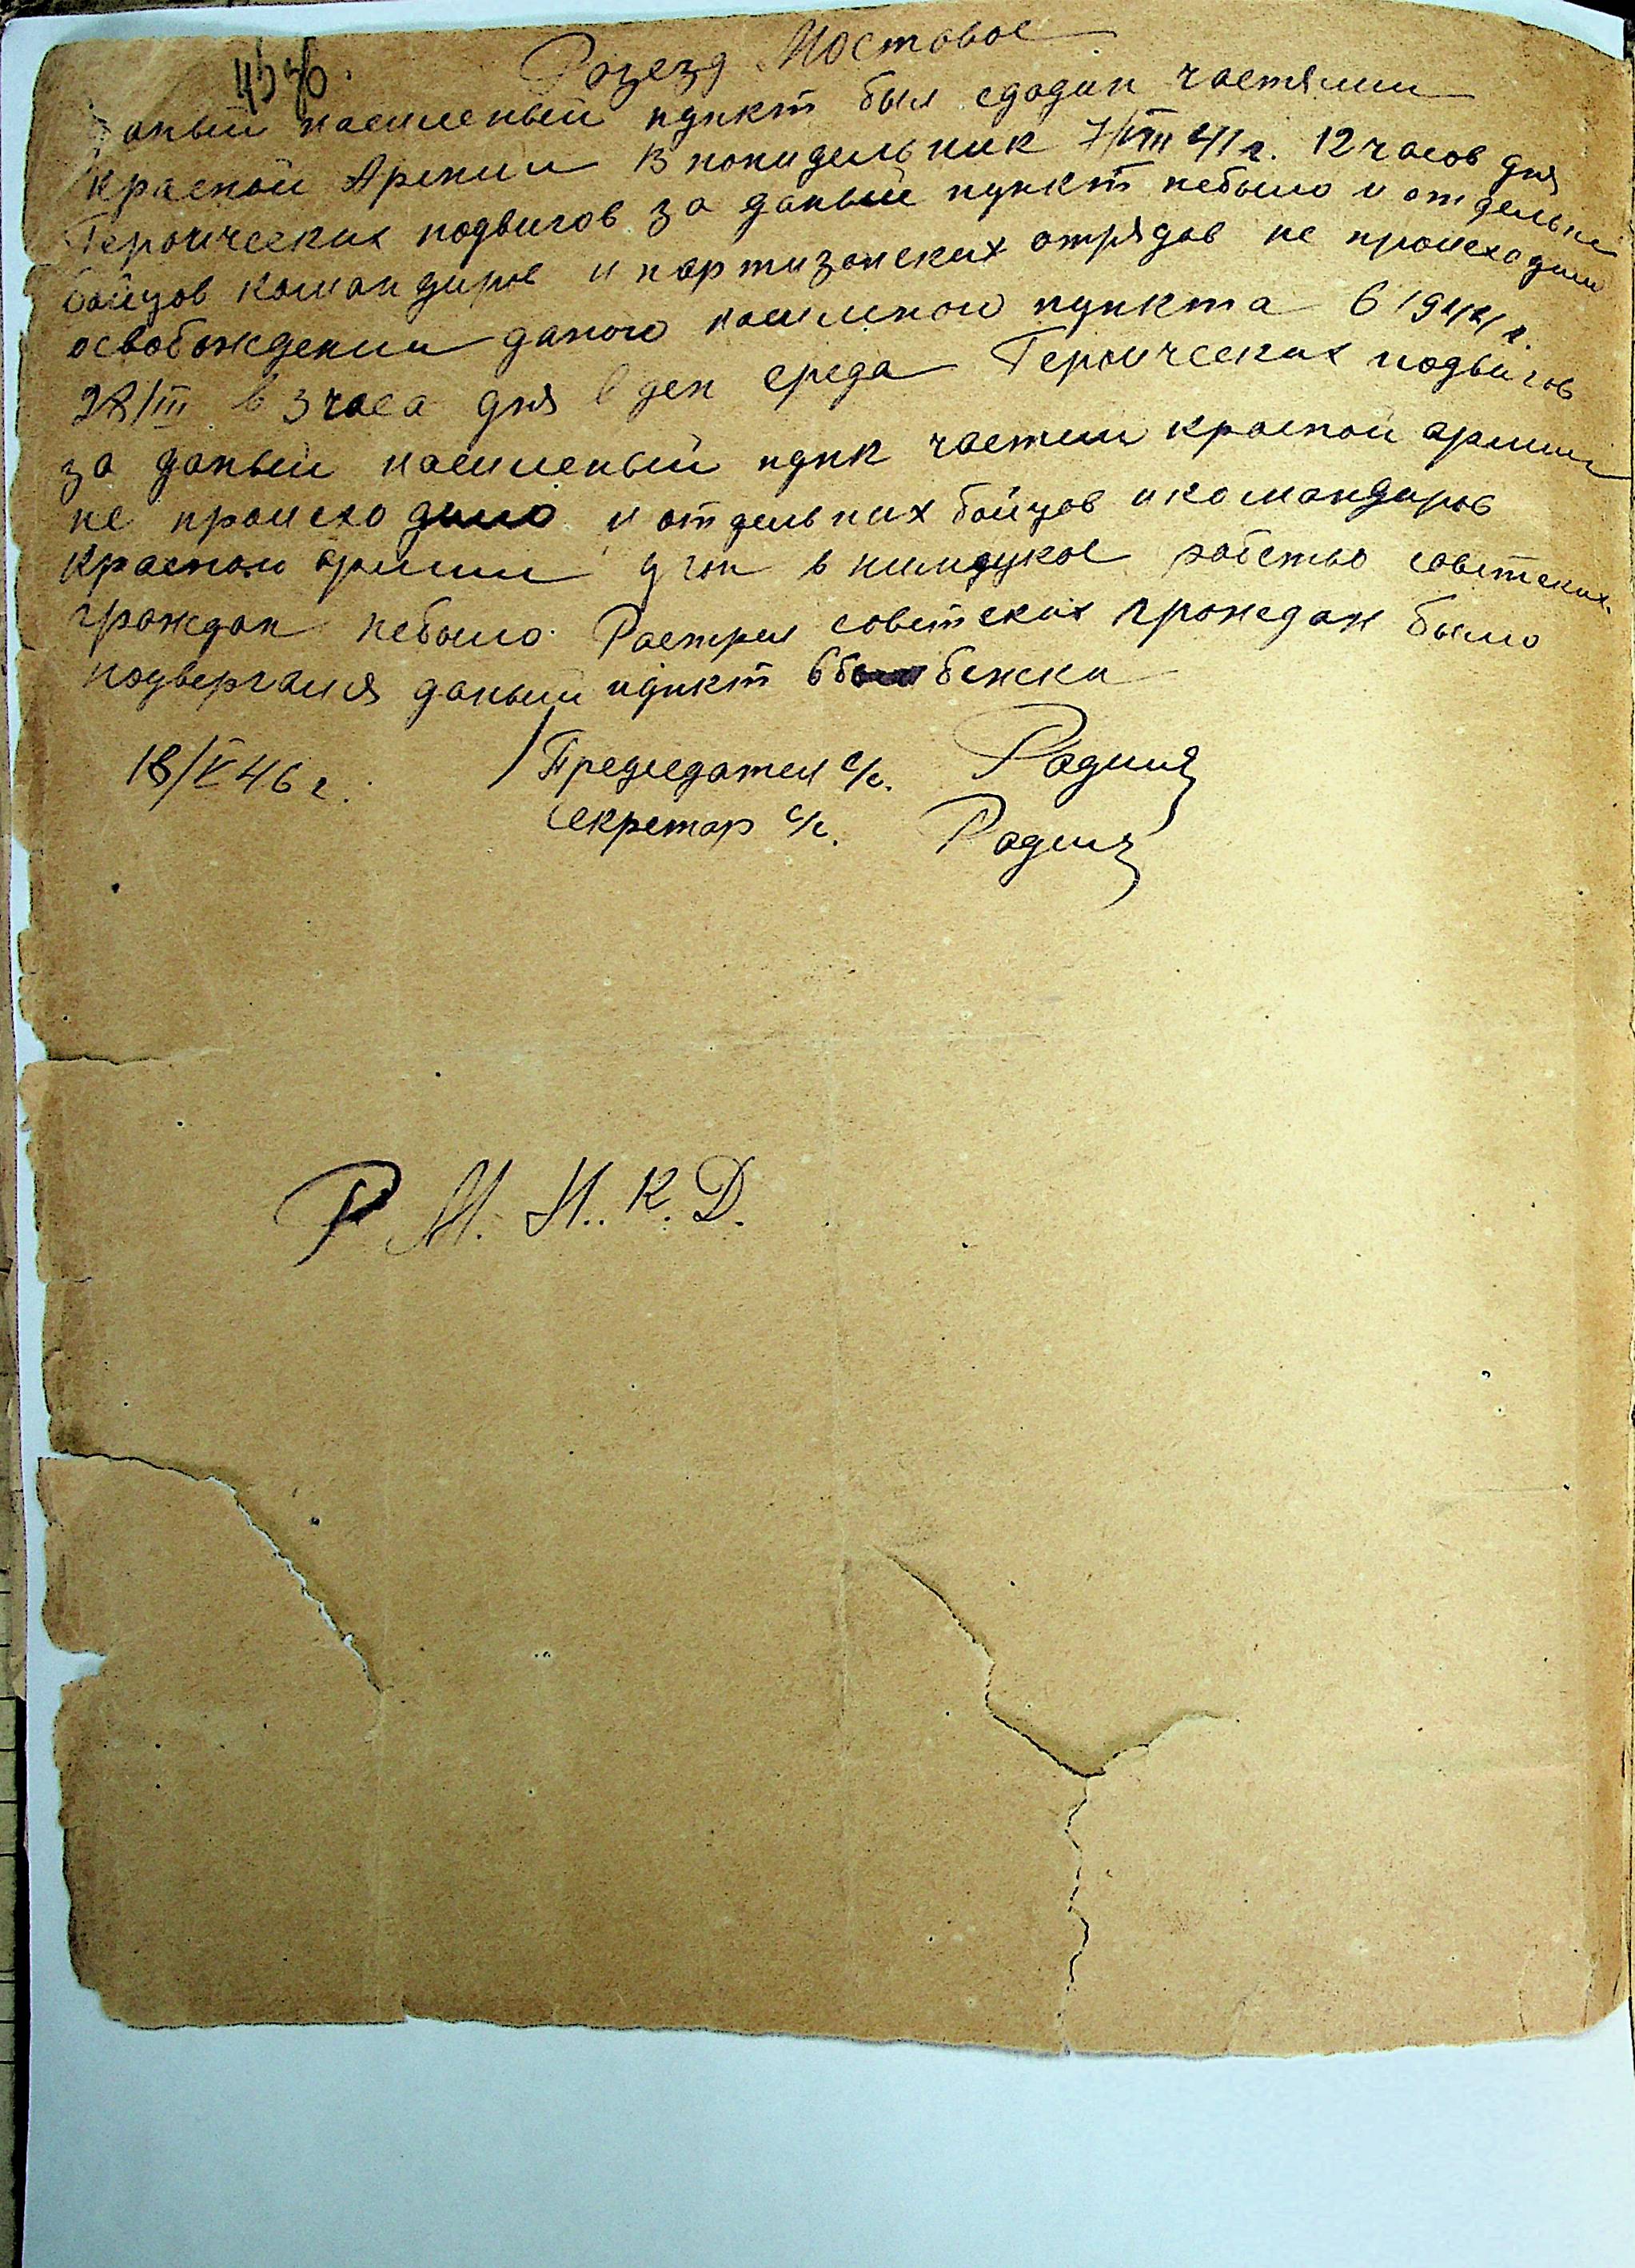 Розезд Мостовое
даный насиленый пункт был сдадин частями
Красной Армии В понидельник 7/VIII 41 г. 12 часов дня
Героических подвигов за даный пункт небыло и отдельних
бойцов командиров и партизонских отрядов не происходило
освобождении даного насиленого пункта в 1944 г.
28/III в 3 часа дня в ден среда Героических подвигов
за даный насиленый пунк частии красной армии
не происходило и отдельних бойцов и командиров
Красной армии угон в нимецкое рабство советских
граждан небыло Растрел советских граждан было
подвергался даный пункт
18/V 46 г. Председател с/с. Радина
Секретар с/с. Радина
Р М. Н. К. Д.